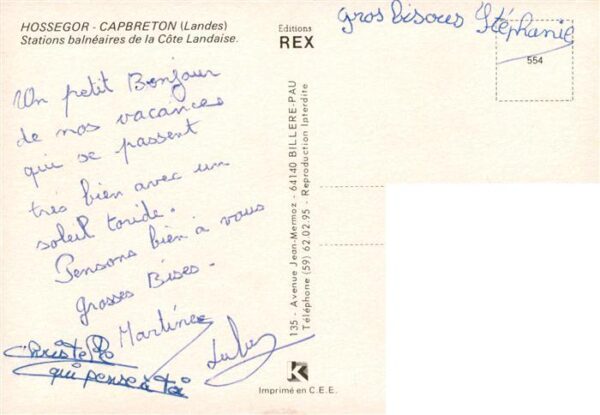 HOSSEGOR - CAPBRETON (Landes)
Stations balnéaires de la Côte Landaise.
Un petit Bonjour
de nos vacances
qui se passent
très bien avec un
soleil toride.
Pensons bien à vous
grosses Bises.
Martine
qui pense à toi
Editions
REX
135 - Avenue Jean-Mermoz - 64140 BILLERE-PAU
Téléphone (59) 62.02.95 - Reproduction Interdite
K
Imprimé en C.E.E.
gros bisous Stéphanie
554